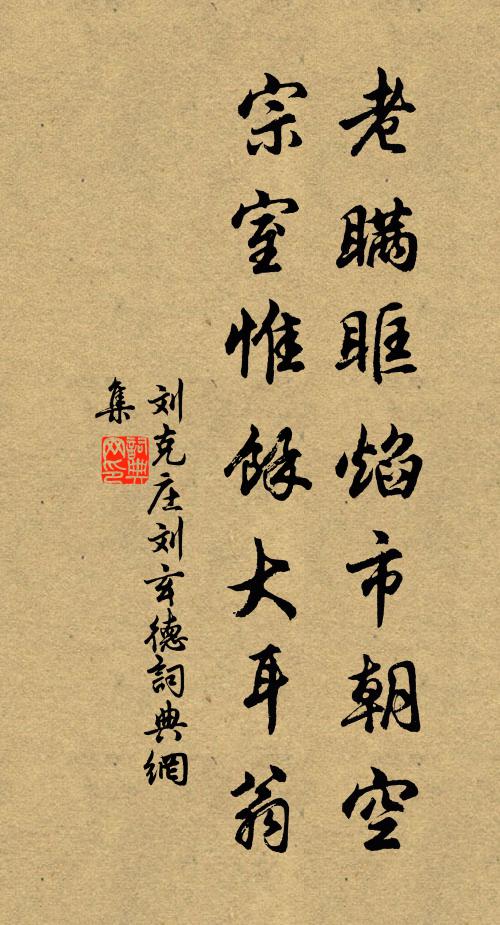 老瞞眶焰市朝空
宗室惟餘大耳翁
刘克庄刘玄德詞典網
集
詞典网印